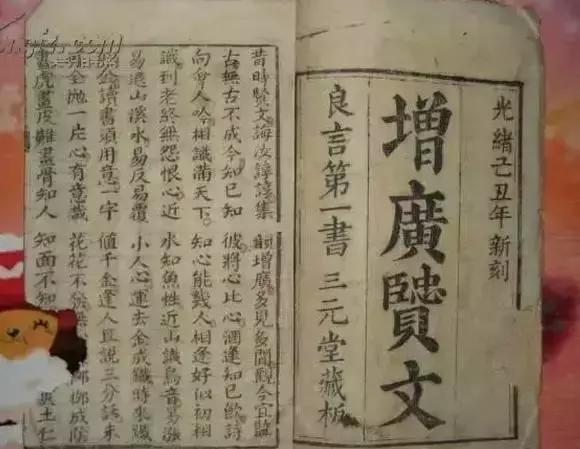 光緒己丑年新刻
增廣賢文
良言第一書 三元堂藏板
昔時賢文誨汝諄諄集韻增廣多見多聞觀今宜監
古無古不成今知已知彼將心比心酒逢知已飲詩
向會人吟相識滿天下知心能幾人相逢好似初相
識到老終無怨恨心近水知魚性近山識鳥音易漲
易退山溪水易反易覆小人心運去金成鐵時來鐵
似金讀書須用意一字值千金逢人且說三分話未
可全拋一片心有意栽花花不發無柳柳成陰
畫虎畫皮難畫骨知人知面不知與土仁